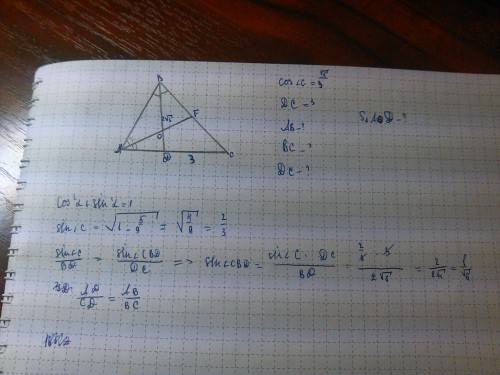 B
2√5
F
O
A
D
3
C
cos∠C = √5/3
DC = 3
AB - ?
BC - ?
DC - ?
S AOD - ?
cos²α + sin²α = 1
sin∠C = √(1 - 5/9) = √(4/9) = 2/3
sin∠C/BD = sin∠CBD/DC => sin∠CBD = sin∠C · DC/BD = 2/3 · 3/2√5 = 2/2√5 = 1/√5
AD/CD = AB/BC